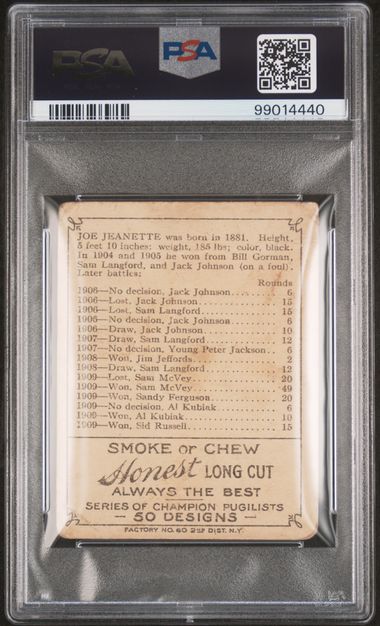 PSA
PSA
99014440
JOE JEANETTE was born in 1881. Height,
5 feet 10 inches: weight, 185 lbs; color, black.
In 1904 and 1905 he won from Bill Gorman,
Sam Langford, and Jack Johnson (on a foul).
Later battles:
Rounds
1906—No decision, Jack Johnson........ 6
1906—Lost, Jack Johnson........ 15
1906—Lost, Sam Langford........ 15
1905—No decision, Jack Johnson........ 6
1906—Draw, Jack Johnson........ 10
1907—Draw, Sam Langford........ 12
1907—No decision, Young Peter Jackson.. 6
1908—Won, Jim Jeffords........ 2
1908—Draw, Sam Langford........ 12
1909—Lost, Sam McVey........ 20
1909—Won, Sam McVey........ 49
1909—Won, Sandy Ferguson........ 20
1909—No decision, Al Kubiak........ 6
1909—Won, Al Kubiak........ 10
1909—Won, Sid Russell........ 15
SMOKE or CHEW
Honest LONG CUT
ALWAYS THE BEST
SERIES OF CHAMPION PUGILISTS
— 50 DESIGNS —
FACTORY NO. 60 2ND DIST. N.Y.